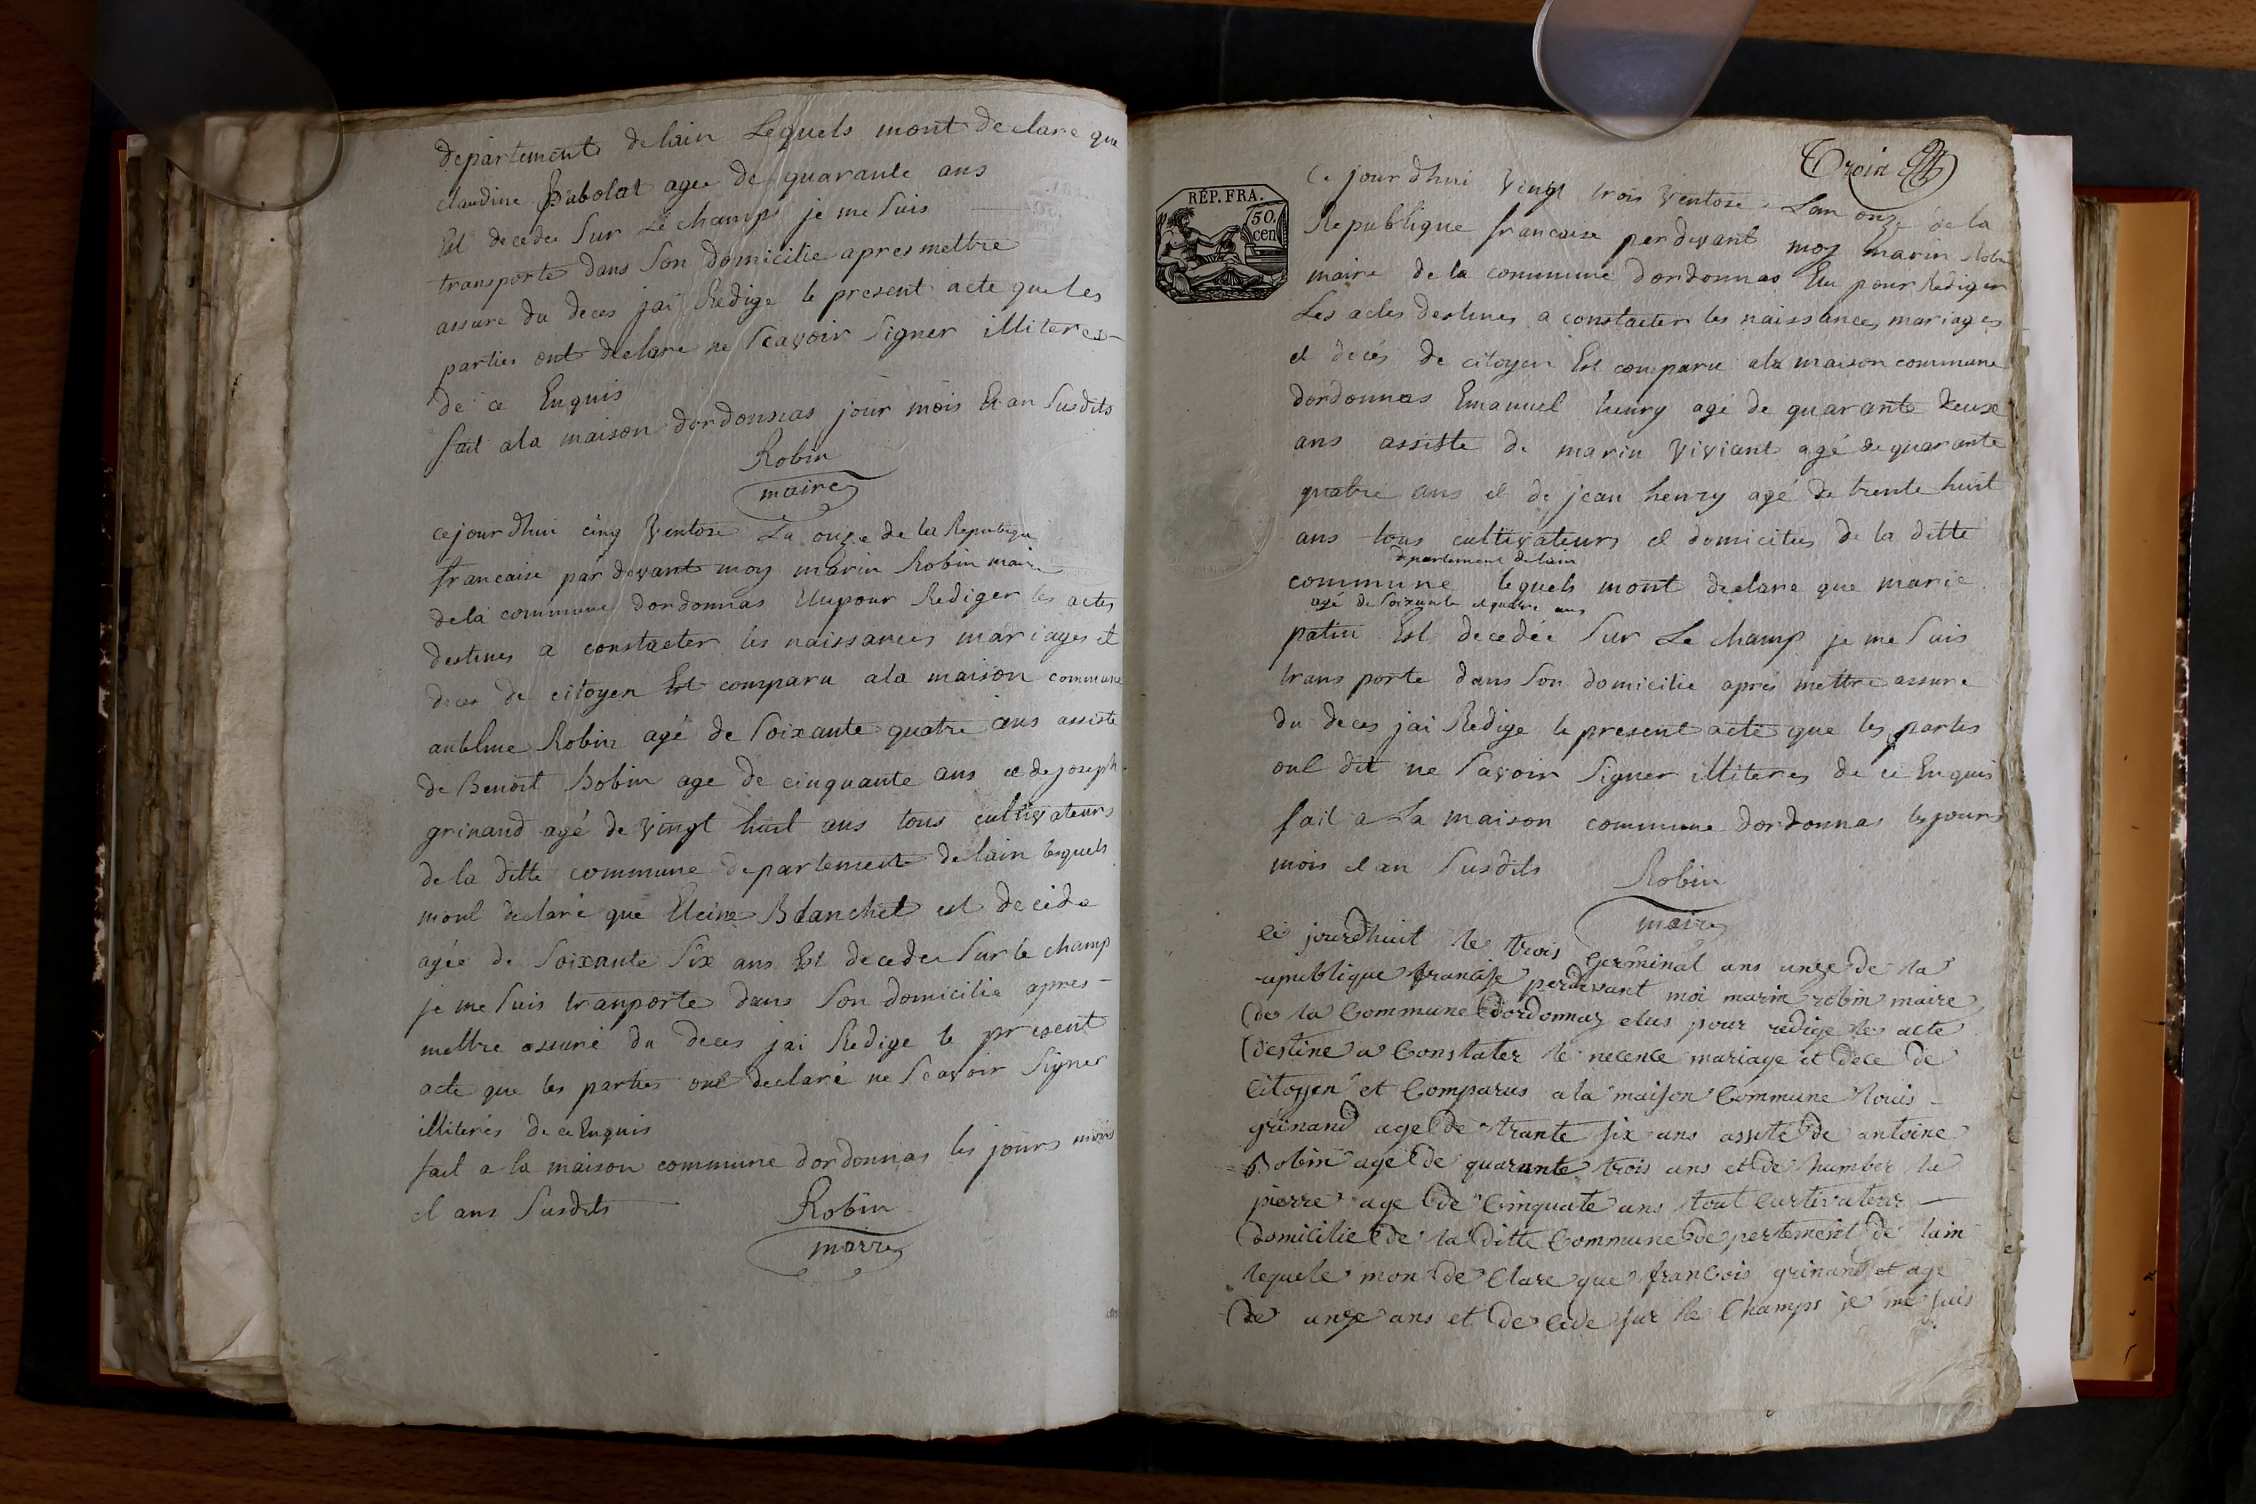 departement delain Lequels mont declare que
claudine Pabolat agee de quarante ans
Est decedee Sur Le champ je me Suis
transporte dans Son domicilie apres mettre
assure du deces jai Redige le present acte que les
parties ont declare ne Scavoir Signer illiteres
de ce Enquis
fait ala maison dordonnas jour mois Et an Susdits
Robin
maire
cejourdhui cinq Ventose La onze de la Republique
francaise pardevant moy marin Robin maire
dela commune dordonnas Elu pour Rediger les actes
destines a constaeter les naissances mariages et
deces de citoyen Est comparu ala maison commune
antelme Robin agé de Soixante quatre ans assiste
de Benoit Robin age de cinquante ans et de joseph
grinand agé de Vingt huit ans tous cultivateurs
de la ditte commune departement delain lequels
mont declaré que Eleine Blanchet est decede
agée de Soixante Six ans Est decedee Sur le champ
je me Suis tranporte dans Son domicilie apres
mettre assuré du deces jai Redige le present
acte que les parties ont declaré ne Scavoir Signer
illiterés de ce Enquis
fait a la maison commune dordonnas les jours mois
et ans Susdits
Robin
maire
Troin
RÉP. FRA.
50.
cen
Ce jourdhui Vingt trois Ventose Lan onze de la
Republique francaise perdevant moy marin Robin
maire de la commune dordonnas Elu pour Rediger
Les actes destines a constaeter les naissances mariages
et decés de citoyen Est comparu ala maison commune
dordonnas Emanuel henry agé de quarante deux
ans assiste de marin Viviant agé de quarante
quatre ans et de jean henry agé de trente huit
ans tous cultivateurs et domicilies de la ditte
departement delain
commune lequels mont declare que marie
agé de Soixante et quatre ans
patin Est decedée Sur Le champ je me Suis
trans porte dans Son domicilie aprés mettre assure
du deces jai Redige le present acte que les parties
ont dit ne Savoir Signer illiteres de ce Enquis
fait a La maison commune dordonnas les jours
mois et an Susdits
Robin
maire
Ce jourdhuit le trois Germinal ans unze de la
republique francise perdevant moi marin robin maire
de la Commune dordonnaz elus pour redige le acte
destine a Constater le necence mariage et dece de
Citoyen et Comparus a la maison Commune louis
grinand age de trante six ans assite de antoine
Robin age de quarante trois ans et de humber la
pierre age de Cinquate ans tout curtivateur
domicilie de la ditte Commune de pertement de lain
lequele mon de Clare que francois grinand et age
de unze ans et de cede sur le Champs je me suis